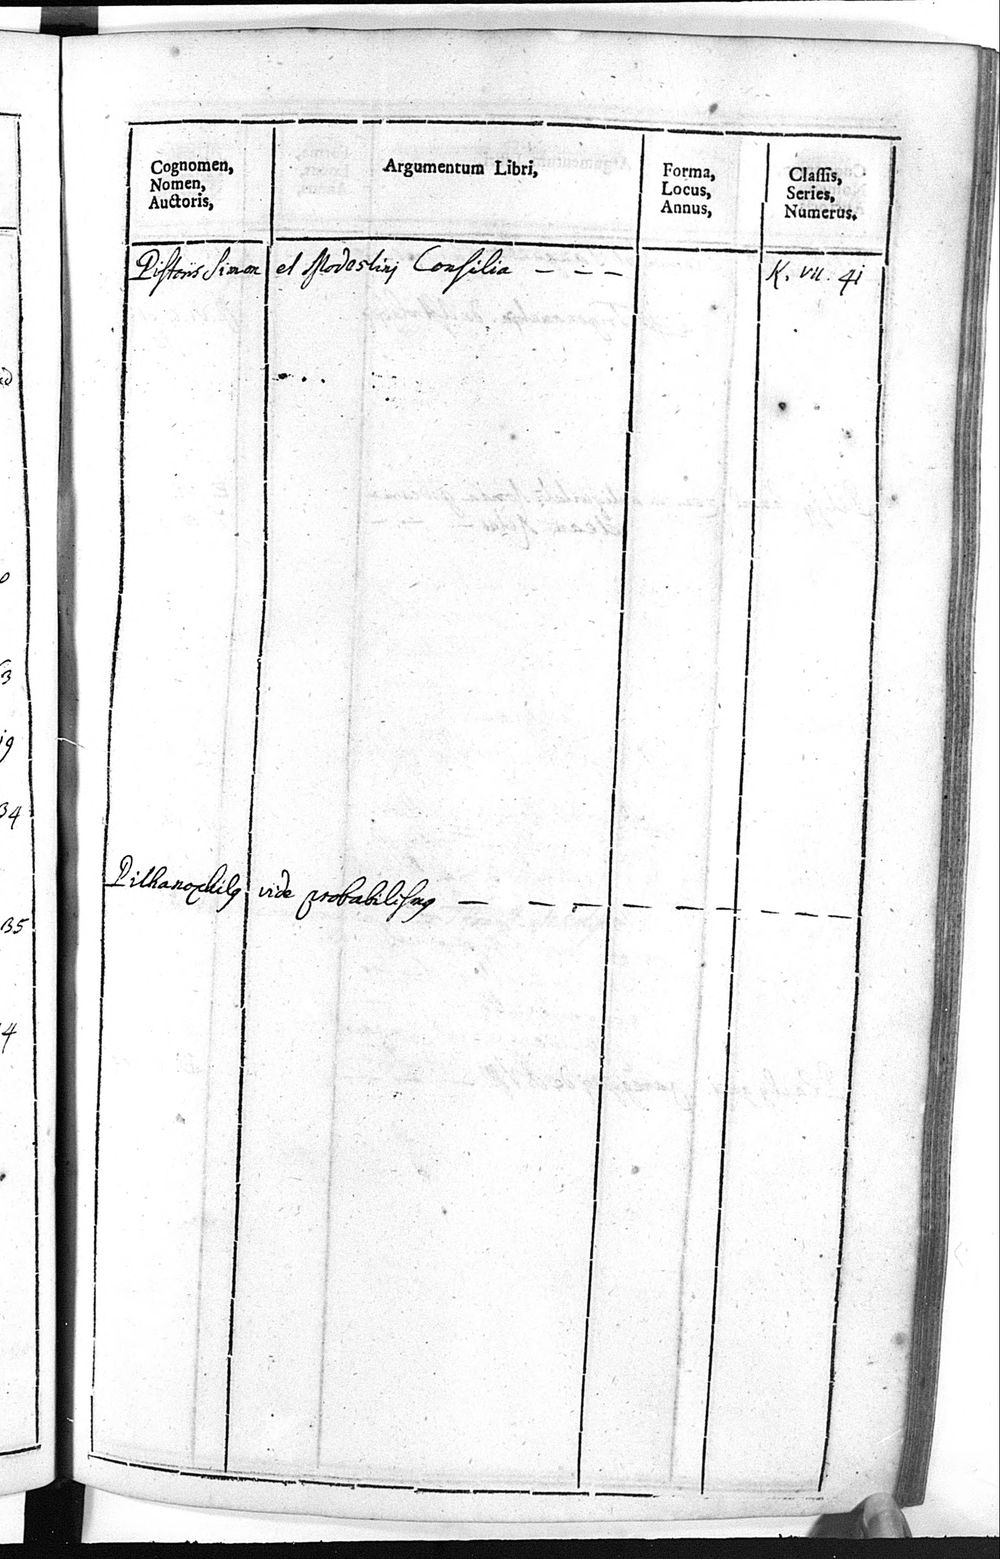 Cognomen,
Nomen,
Auctoris,
Argumentum Libri,
Forma,
Locus,
Annus,
Classis,
Series,
Numerus.
Pistoris Simon et Modestinj Consilia - - - K. VII. 41
Pithanophilq vide probabilismq - - - - - - - -
3
19
34
135
4